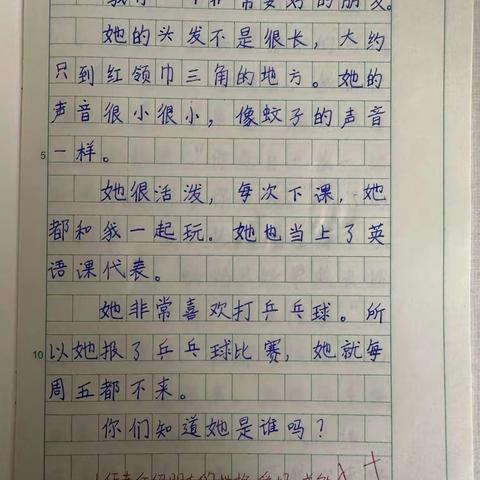 我有一个非常要好的朋友。
她的头发不是很长，大约
只到红领巾三角的地方。她的
声音很小很小，像蚊子的声音
5
一样。
她很活泼，每次下课，她
都和我一起玩。她也当上了英
语课代表。
她非常喜欢打乒乓球。所
10
以她报了乒乓球比赛，她就每
周五都不来。
你们知道她是谁吗？